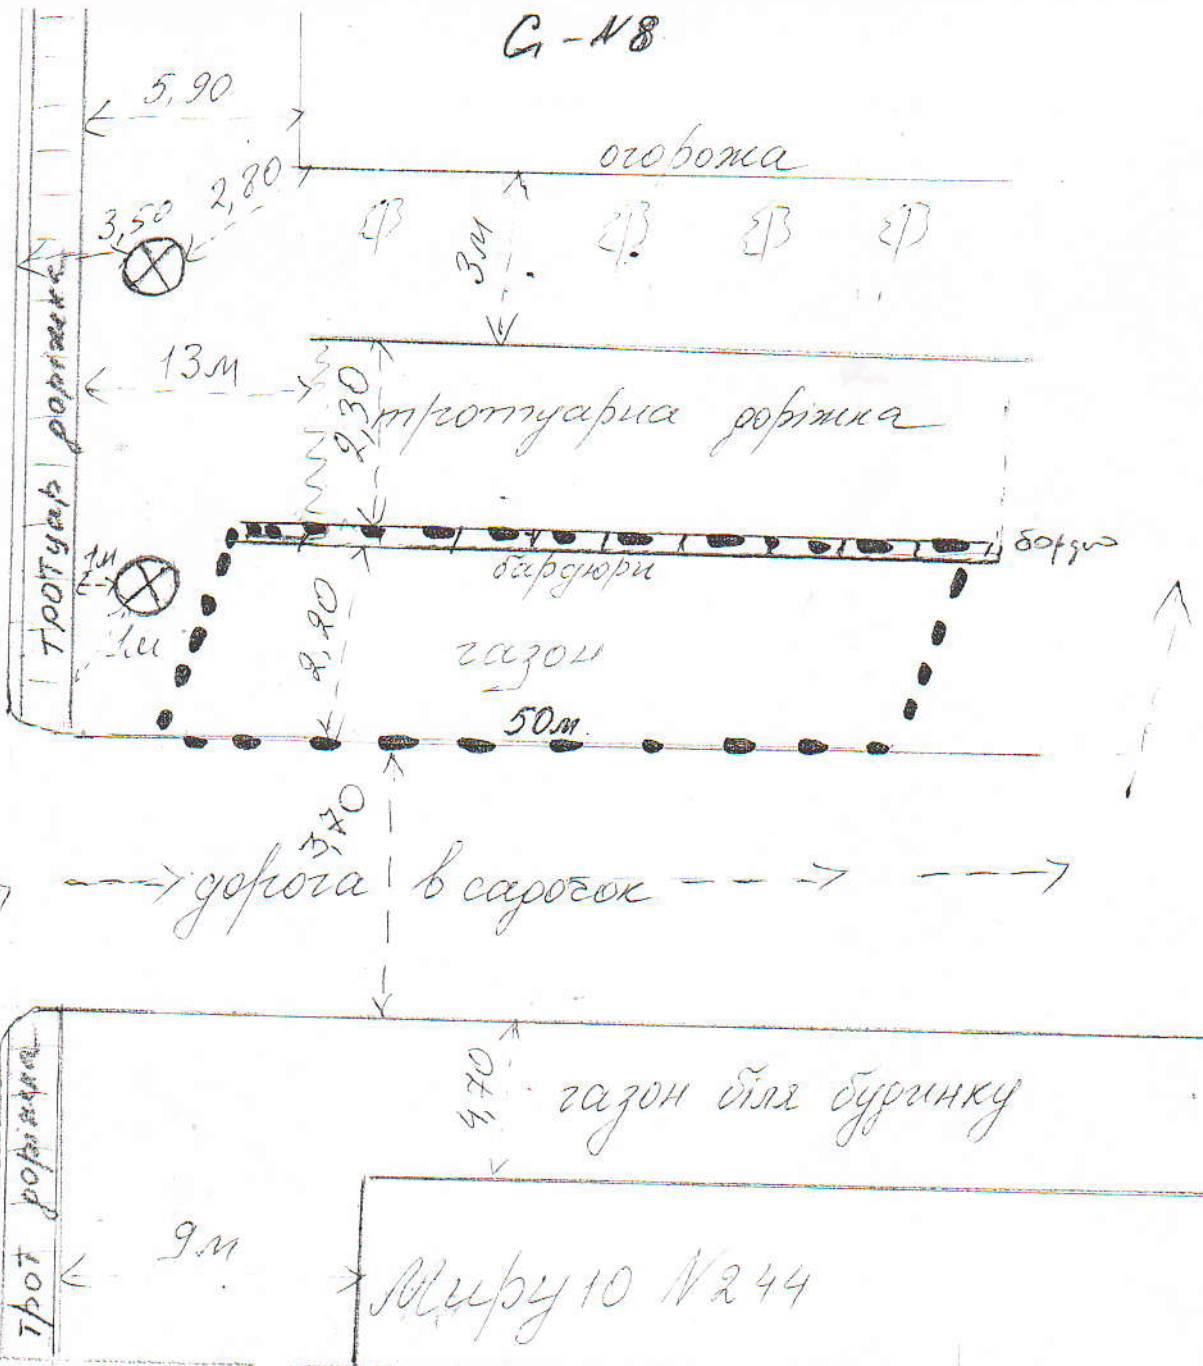 С-N8
5,90
огорожа
2,80
3,50
3м
13м
2,30
тротуарна доріжка
тротуар доріжка
бордю
бардюри
1м
1м
2,20
газон
50м.
3,70
дорога в садочок
4,70
газон біля будинку
трот доріжка
9м
Миру 10 N244